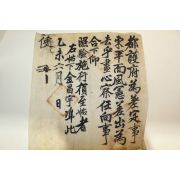 都護府爲差定事
東萊面風憲差出爲
去乎盡心察任向事
合下仰
照驗施行須至帖者
右帖下金昌宇準此
乙未六月 日
使